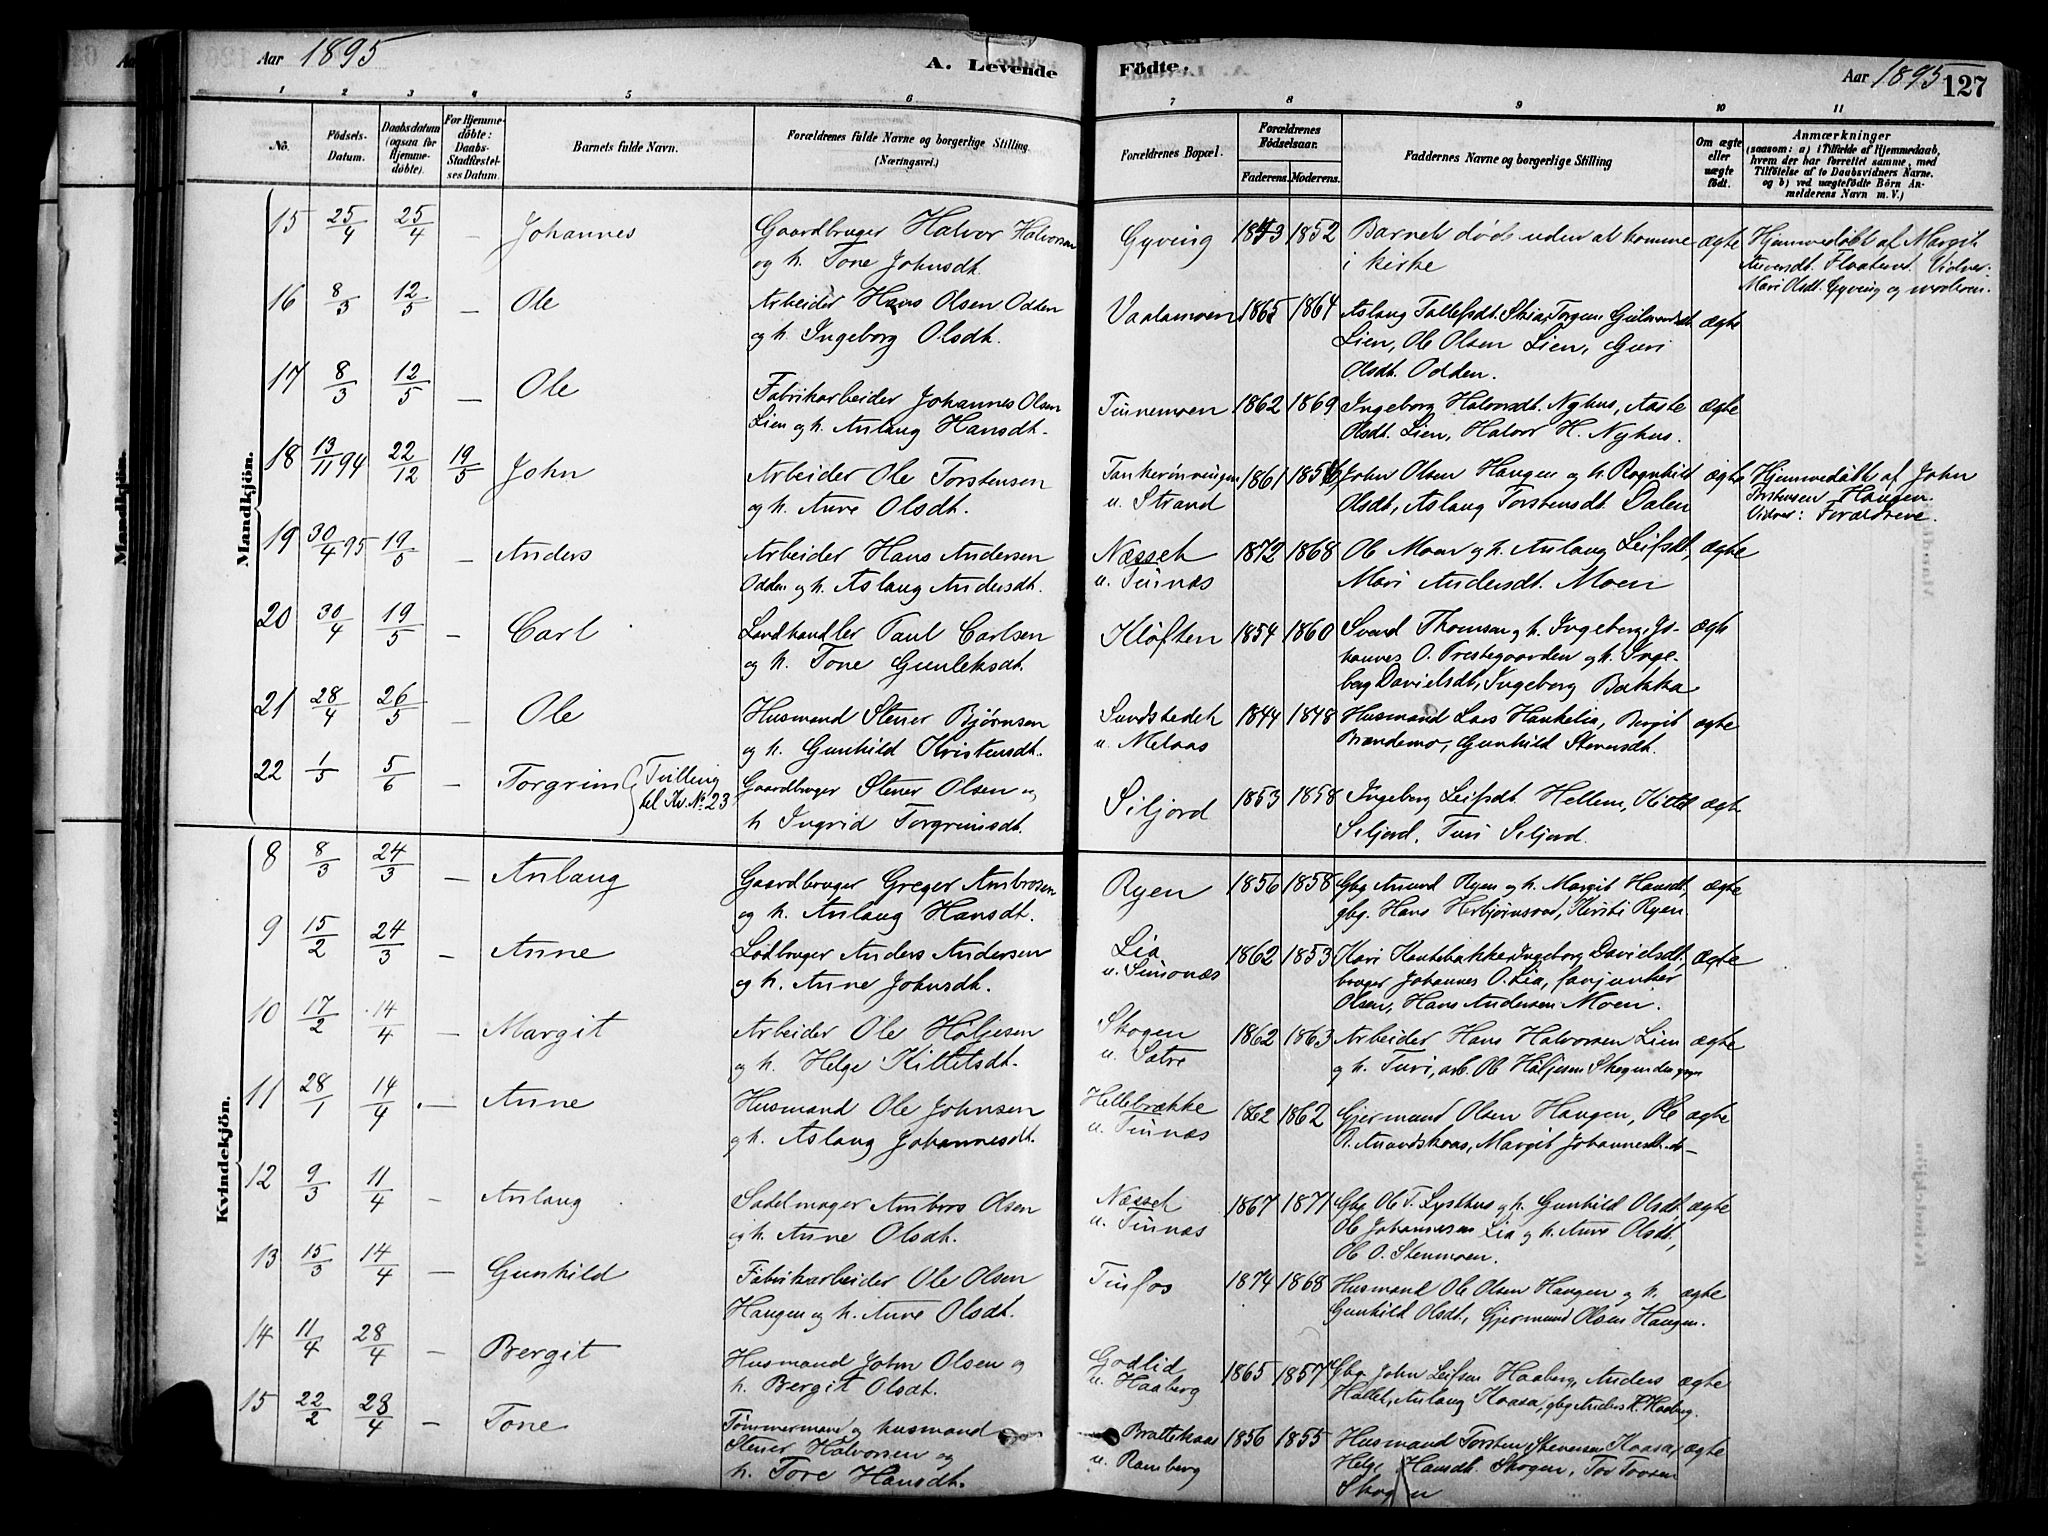 Aar 1895
A. Levende Fødte.
Aar 1895 127
1 2 3 4 5 6 7 8 9 10 11
No.
Fødsels-Datum.
Daabsdatum (ogsaa for Hjemme-døbte).
For Hjemme-døbte: Daabs-Stadfæstel-ses Datum.
Barnets fulde Navn.
Forældrenes fulde Navne og borgerlige Stilling. (Næringsvei.)
Forældrenes Bopæl.
Forældrenes Fødselsaar.
Faderens. Moderens.
Faddernes Navne og borgerlige Stilling
Om ægte eller uægte født.
Anmærkninger
(saasom: a) i Tilfælde af Hjemmedaab,
hvem der har forrettet samme, med
Tilføielse af to Daabsvidners Navne.
og b) ved uægtefødte Børn An-
melderens Navn m. V.)
Mandkjøn.
15 25/4 25/4 – Johannes Gaardbruger Halvor Halvorsen Gyving 1843 1852 Barnet døde uden at komme ægte Hjemmedøbt af Margit
og h. Tone Johnsdt. i kirke
Mari Olsdt. Gyving og
16 8/3 12/5 – Ole Arbeider Hans Olsen Odden Vaalamoen 1865 1864 Aslaug Tollefsdt. ægte
og h. Ingeborg Olsdt. Lien, Ole Olsen Lien, Guri
Olsdt. Odden.
17 8/3 12/5 – Ole Fabrikarbeider Johannes Olsen Tinnemoen 1862 1869 Ingeborg Halvorsdt. Nyhus, Aaste ægte
Lien og h. Anlaug Hansdt. Olsdt. Lien, Halvor H. Nyhus.
18 13/11 94 22/12 19/5 John Arbeider Ole Torstensen 1861 John Olsen Haugen og h. Ragnhild ægte Hjemmedøbt af John
og h. Anne Olsdt. u. Strand Olsdt, Aslaug Torstensdt. Dalen Torstensen Haugen.
Vidner: Forældrene.
19 30/4 95 19/5 – Anders Arbeider Hans Andersen Næsset 1872 1868 Ole Moen og h. Anlaug Leifsdt, ægte
Odden og h. Aslaug Andersdt. u. Tinnæs Mari Andersdt. Moen
20 30/4 19/5 – Carl Landhandler Paul Carlsen Kløften 1854 1860 Svend Thomsen og h. Ingeberg, Jo- ægte
og h. Tone Gunleksdt. hannes O. Prestegaarden og h. Inge-
berg Davidsdt, Ingeborg Bakka
21 28/4 26/5 – Ole Husmand Stener Bjørnsen Sundstedet 1844 1848 Husmand Lars Haukelia, Bergit ægte
og h. Gunhild Kristensdt. u. Melaas Brændemo, Gunhild Stenersdt.
22 1/5 5/6 – Torgrim (Tvilling til Kv. No. 23 Gaardbruger Stener Olsen og Siljord 1853 1858 Ingeberg Leifsdt. Hellem, Kittil ægte
h Ingrid Torgrimsdt. Seljord, Turi Seljord.
Kvindekjøn.
8 8/3 24/3 – Anlaug Gaardbruger Greger Ambrosen Ryen 1856 1858 Gbg Anund Ryen og h. Margit Hansdt, ægte
og h. Anlaug Hansdt. gbg. Hans Herbjørnsrød, Kirsti Ryen.
9 15/2 24/3 – Anne Lodbruger Anders Andersen Lia 1862 1853 Kari Haatebakken, Ingeborg Davidsdt, ægte
og h. Anne Johnsdt. u. Simonæs bruger Johannes O. Lia, fanjunker
Olsen, Hans Andersen Moen.
10 17/2 14/4 – Margit Arbeider Ole Høljesen Skogen 1862 1863 Arbeider Hans Halvorsen Lien ægte
og h. Helge Kittilsdt. u. Satre og h. Turi, arb. Ole Høljesen
11 28/1 14/4 – Anne Husmand Ole Johnsen Hellebrække 1862 1862 Gjermund Olsen Haugen, Ole ægte
og h. Aslaug Johannesdt. u. Tinnæs Margit Johannesdt.
12 9/3 11/4 – Anlaug Sadelmager Ambros Olsen Næsset 1867 1871 Gbg. Ole T. Lysthus og h. Gunhild Olsdt. ægte
og h. Anne Olsdt. u. Tinnæs Ole Johannesen Lia og h. Anne Olsdt,
Ole O. Stenmoen.
13 15/3 14/4 – Gunhild Fabrikarbeider Ole Olsen Tinfos 1874 1868 Husmand Ole Olsen Haugen og h. ægte
Haugen og h. Anne Olsdt. Gunhild Olsdt., Gjermund Olsen Haugen.
14 11/4 28/4 – Bergit Husmand John Olsen og Godlid 1865 1857 Gbg. John Leifsen Haaberg, Anders ægte
h. Bergit Olsdt. u. Haaberg Anlaug Kaasa, gbg Anders K. Haaberg.
15 22/2 28/4 – Tone Tømmermand og husmand Brattekaas 1856 1855 Husmand Torsten Stenersen Kaasa, ægte
Stener Halvorsen og u. Ramberg Helge Hansdt. Skogen, Tov Tovsen
h. Tore Hansdt. Skogen